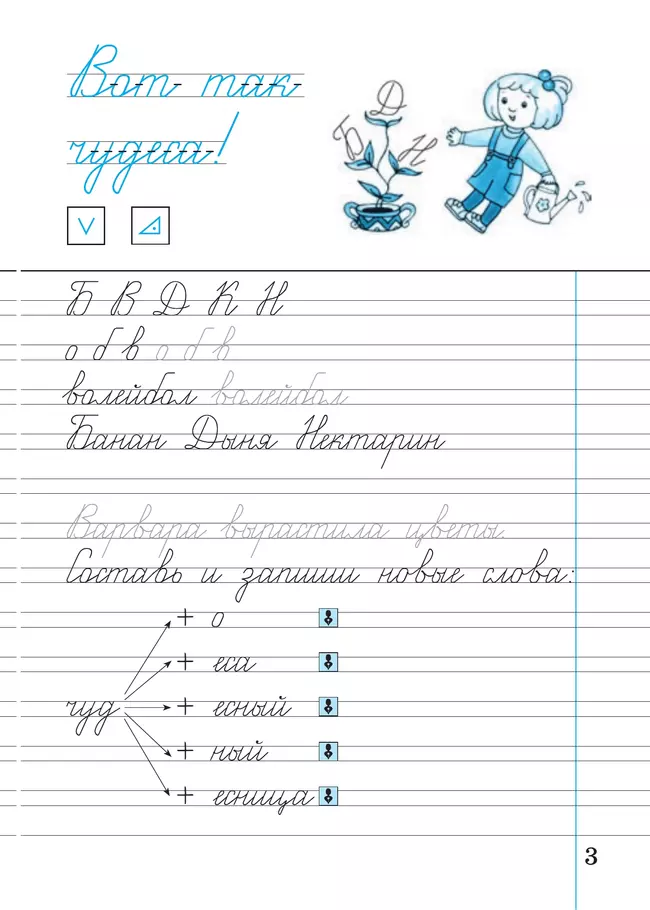 Вот так
чудеса!
Д
Б Н
Б В Д К Н
о б в о б в
волейбол волейбол
Банан Дыня Нектарин
Варвара вырастила цветы.
Составь и запиши новые слова:
+ о
+ еса
чуд + есный
+ ный
+ есница
3